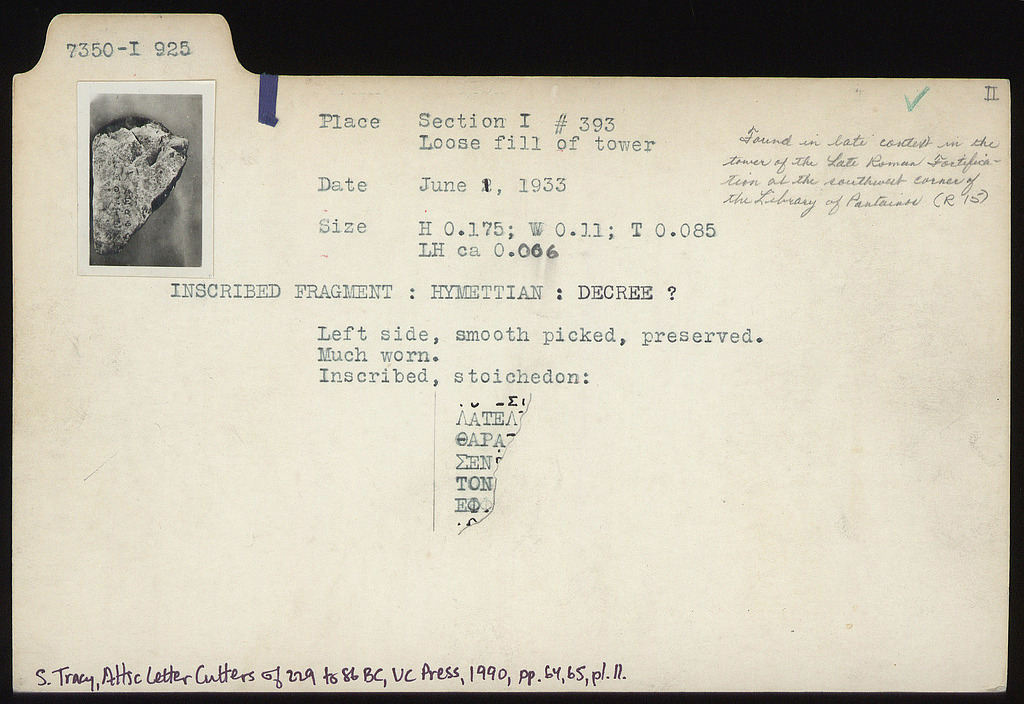 7350-I 925
II
Place Section I # 393
Loose fill of tower
Found in late context in the
tower of the Late Roman Fortifica-
tion at the southwest corner of
the Library of Pantainos (R 15)
Date June 1, 1933
Size H 0.175; W 0.11; T 0.085
LH ca 0.006
INSCRIBED FRAGMENT : HYMETTIAN : DECREE ?
Left side, smooth picked, preserved.
Much worn.
Inscribed, stoichedon:
ΛΑΤΕΛ
ΘΑΡΑ
ΣΕΝ
ΤΟΝ
ΕΦ
S. Tracy, Attic Letter Cutters of 229 to 86 BC, UC Press, 1990, pp. 64, 65, pl. 11.